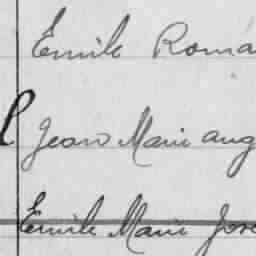 Emile Roma
Jean Marie aug
Emile Marie Jose